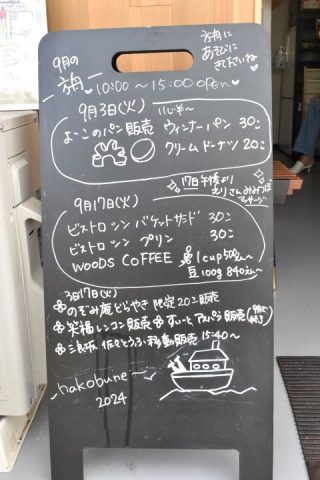 9月の
方舟
方舟に
あそびに
きて下さいね
10:00〜15:00 open
9月3日(火)
よーこのパン販売 ウィンナーパン 30コ
クリームドーナツ 20コ
17日午後より
えりさん
マッサージ
9月17日(火)
ビストロ シン バケットサンド 30コ
ビストロ シン プリン 30コ
WOODS COFFEE 1cup500〜
豆100g 840〜
3日17日(火)
のぞみ庵どらやき 限定20コ販売
笑福レンコン販売 すいーとアスパラ販売
三良坂 佐々木とうふ移動販売 15:40〜
hakobune
2024